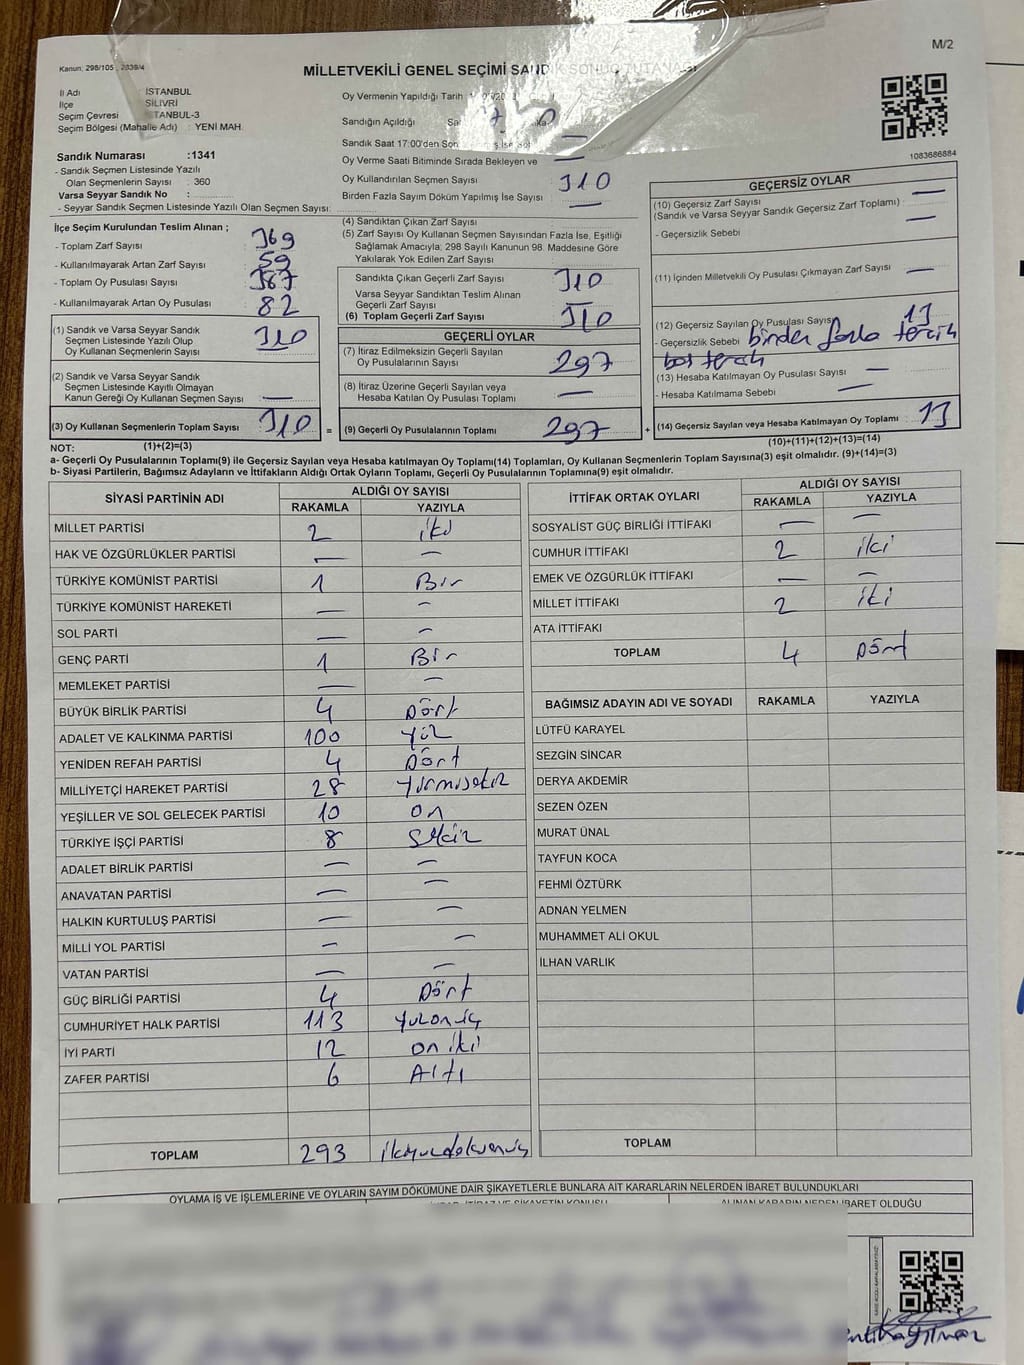 M/2
Kanun: 298/105 , 2839/4
MİLLETVEKİLİ GENEL SEÇİMİ SANDIK SONUÇ TUTANAĞI
İl Adı : İSTANBUL
İlçe SİLİVRİ
Seçim Çevresi TANBUL-3
Seçim Bölgesi (Mahalle Adı) : YENİ MAH.
Oy Vermenin Yapıldığı Tarih
Sandığın Açıldığı
Sandık Saat 17:00'den Son
Oy Verme Saati Bitiminde Sırada Bekleyen ve
Oy Kullandırılan Seçmen Sayısı 310
Birden Fazla Sayım Döküm Yapılmış İse Sayısı —
1083686884
Sandık Numarası :1341
- Sandık Seçmen Listesinde Yazılı
Olan Seçmenlerin Sayısı : 360
Varsa Seyyar Sandık No :
- Seyyar Sandık Seçmen Listesinde Yazılı Olan Seçmen Sayısı:
İlçe Seçim Kurulundan Teslim Alınan ;
- Toplam Zarf Sayısı 369
- Kullanılmayarak Artan Zarf Sayısı 59
- Toplam Oy Pusulası Sayısı
- Kullanılmayarak Artan Oy Pusulası 82
(1) Sandık ve Varsa Seyyar Sandık
Seçmen Listesinde Yazılı Olup
Oy Kullanan Seçmenlerin Sayısı 310
(2) Sandık ve Varsa Seyyar Sandık
Seçmen Listesinde Kayıtlı Olmayan
Kanun Gereği Oy Kullanan Seçmen Sayısı —
(3) Oy Kullanan Seçmenlerin Toplam Sayısı : 310 =
(4) Sandıktan Çıkan Zarf Sayısı
(5) Zarf Sayısı Oy Kullanan Seçmen Sayısından Fazla İse, Eşitliği
Sağlamak Amacıyla; 298 Sayılı Kanunun 98. Maddesine Göre
Yakılarak Yok Edilen Zarf Sayısı
Sandıkta Çıkan Geçerli Zarf Sayısı 310
Varsa Seyyar Sandıktan Teslim Alınan
Geçerli Zarf Sayısı —
(6) Toplam Geçerli Zarf Sayısı 310
GEÇERLİ OYLAR
(7) İtiraz Edilmeksizin Geçerli Sayılan
Oy Pusulalarının Sayısı 297
(8) İtiraz Üzerine Geçerli Sayılan veya
Hesaba Katılan Oy Pusulası Toplamı —
(9) Geçerli Oy Pusulalarının Toplamı 297 +
GEÇERSİZ OYLAR
(10) Geçersiz Zarf Sayısı —
(Sandık ve Varsa Seyyar Sandık Geçersiz Zarf Toplamı) —
- Geçersizlik Sebebi
(11) İçinden Milletvekili Oy Pusulası Çıkmayan Zarf Sayısı —
(12) Geçersiz Sayılan Oy Pusulası Sayısı 13
- Geçersizlik Sebebi birden fazla tercih
boş tercih
(13) Hesaba Katılmayan Oy Pusulası Sayısı —
- Hesaba Katılmama Sebebi —
(14) Geçersiz Sayılan veya Hesaba Katılmayan Oy Toplamı : 13
NOT: (1)+(2)=(3) (10)+(11)+(12)+(13)=(14)
a- Geçerli Oy Pusulalarının Toplamı(9) ile Geçersiz Sayılan veya Hesaba katılmayan Oy Toplamı(14) Toplamları, Oy Kullanan Seçmenlerin Toplam Sayısına(3) eşit olmalıdır. (9)+(14)=(3)
b- Siyasi Partilerin, Bağımsız Adayların ve İttifakların Aldığı Ortak Oyların Toplamı, Geçerli Oy Pusulalarının Toplamına(9) eşit olmalıdır.
SİYASİ PARTİNİN ADI ALDIĞI OY SAYISI
RAKAMLA YAZIYLA
MİLLET PARTİSİ 2 iki
HAK VE ÖZGÜRLÜKLER PARTİSİ — —
TÜRKİYE KOMÜNİST PARTİSİ 1 Bir
TÜRKİYE KOMÜNİST HAREKETİ — —
SOL PARTİ — —
GENÇ PARTİ 1 Bir
MEMLEKET PARTİSİ — —
BÜYÜK BİRLİK PARTİSİ 4 Dört
ADALET VE KALKINMA PARTİSİ 100 Yüz
YENİDEN REFAH PARTİSİ 4 Dört
MİLLİYETÇİ HAREKET PARTİSİ 28 Yirmisekiz
YEŞİLLER VE SOL GELECEK PARTİSİ 10 On
TÜRKİYE İŞÇİ PARTİSİ 8 Sekiz
ADALET BİRLİK PARTİSİ — —
ANAVATAN PARTİSİ — —
HALKIN KURTULUŞ PARTİSİ — —
MİLLİ YOL PARTİSİ — —
VATAN PARTİSİ — —
GÜÇ BİRLİĞİ PARTİSİ 4 Dört
CUMHURİYET HALK PARTİSİ 113 Yüzonüç
İYİ PARTİ 12 on iki
ZAFER PARTİSİ 6 Altı
TOPLAM 293 ikiyüzdoksanüç
İTTİFAK ORTAK OYLARI ALDIĞI OY SAYISI
RAKAMLA YAZIYLA
SOSYALİST GÜÇ BİRLİĞİ İTTİFAKI — —
CUMHUR İTTİFAKI 2 iki
EMEK VE ÖZGÜRLÜK İTTİFAKI — —
MİLLET İTTİFAKI 2 iki
ATA İTTİFAKI
TOPLAM 4 Dört
BAĞIMSIZ ADAYIN ADI VE SOYADI RAKAMLA YAZIYLA
LÜTFÜ KARAYEL
SEZGİN SİNCAR
DERYA AKDEMİR
SEZEN ÖZEN
MURAT ÜNAL
TAYFUN KOCA
FEHMİ ÖZTÜRK
ADNAN YELMEN
MUHAMMET ALİ OKUL
İLHAN VARLIK
TOPLAM
OYLAMA İŞ VE İŞLEMLERİNE VE OYLARIN SAYIM DÖKÜMÜNE DAİR ŞİKAYETLERLE BUNLARA AİT KARARLARIN NELERDEN İBARET BULUNDUKLARI
İTİRAZ VE ŞİKAYETİN KONUSU ALINAN KARARIN NEDEN İBARET OLDUĞU